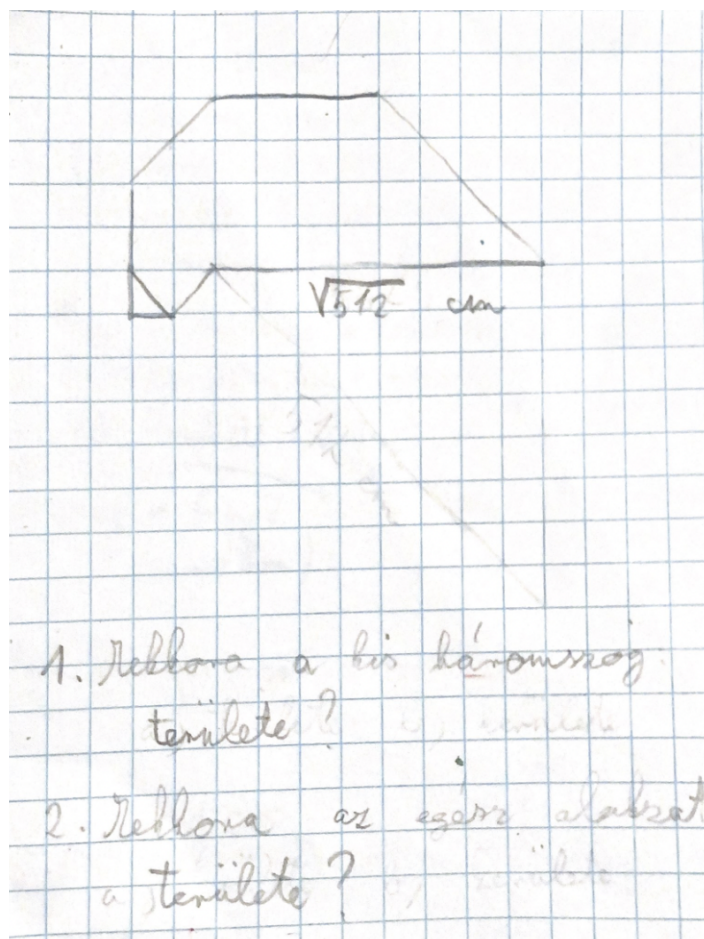 √512 cm
1. Mekkora a kis háromszög
területe?
2. Mekkora az egész alakzat
a területe?